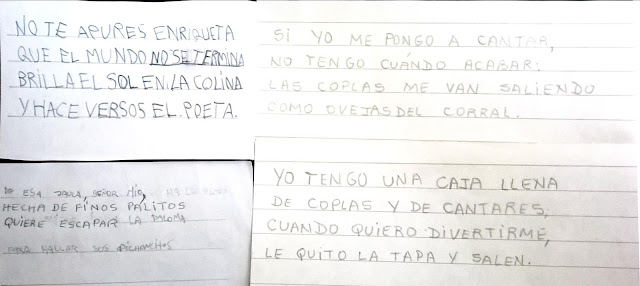 NO TE APURES ENRIQUETA
QUE EL MUNDO NO SE TERMINA
BRILLA EL SOL EN LA COLINA
Y HACE VERSOS EL POETA.
SI YO ME PONGO A CANTAR,
NO TENGO CUÁNDO ACABAR:
LAS COPLAS ME VAN SALIENDO
COMO OVEJAS DEL CORRAL.
ESA JAULA, SEÑOR MÍO,
HECHA DE FINOS PALITOS
QUIERE ESCAPAR LA PALOMA
PARA HALLAR SUS PICHONCITOS
YO TENGO UNA CAJA LLENA
DE COPLAS Y DE CANTARES,
CUANDO QUIERO DIVERTIRME,
LE QUITO LA TAPA Y SALEN.